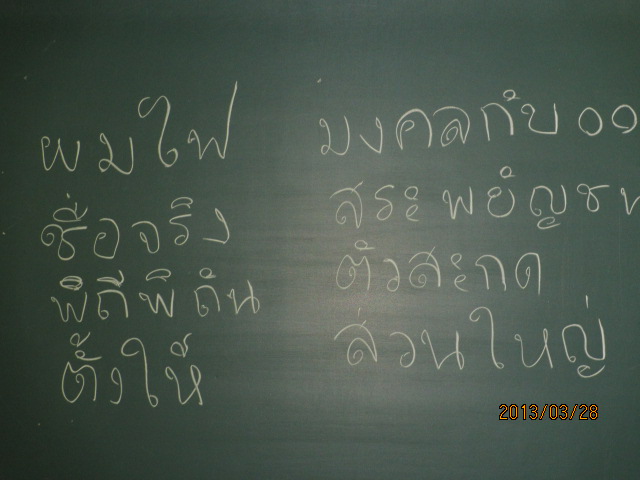 ผมไฟ
ชื่อจริง
พิถีพิถัน
ตั้งให้
มงคลกับ
สระพยัญช
ตัวสะกด
ส่วนใหญ่
2013/03/28